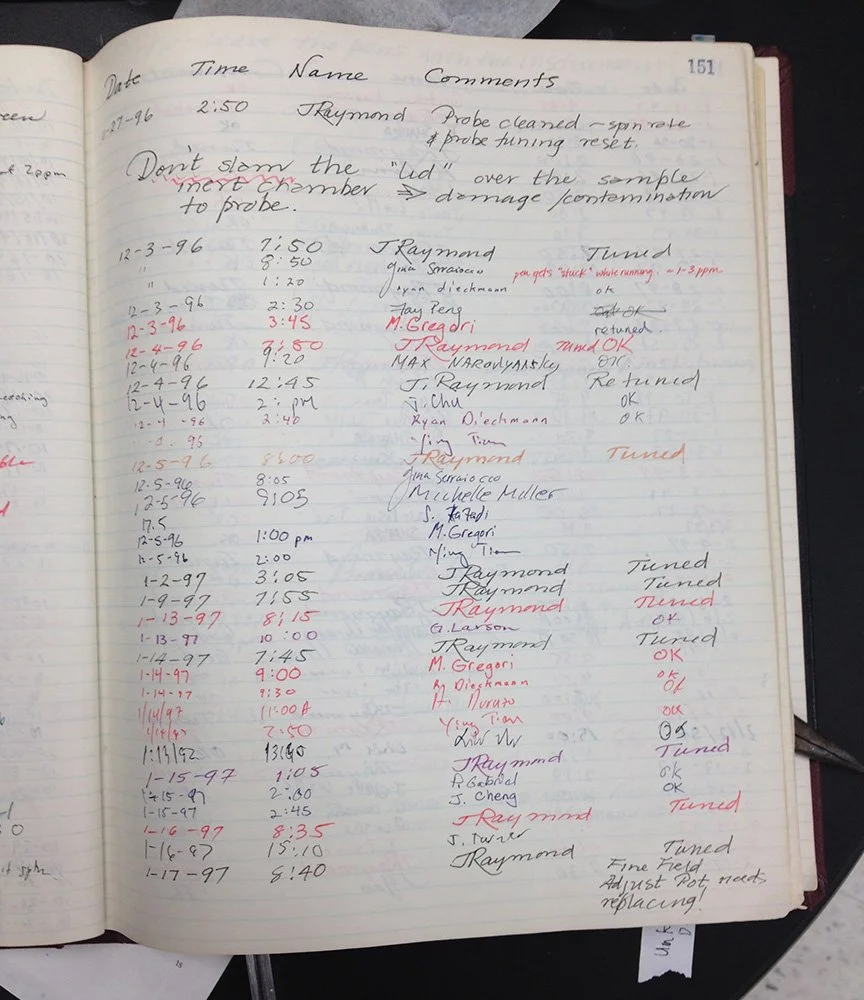 151
Date Time Name Comments
-27-96 2:50 JRaymond Probe cleaned - spin rate
& probe tuning reset.
Don't slam the "lid" over the sample
inert chamber => damage/contamination
to probe.
12-3-96 7:50 JRaymond Tuned
" 8:50 gina Serraiocco pen gets "stuck" while running. ~1-3ppm
" 1:20 ryan dieckmann ok
12-3-96 2:30 Jay Peng
12-3-96 3:45 M.Gregori retuned.
12-4-96 7:50 JRaymond Tuned OK
12-4-96 9:20 MAX NARODYANSKY OK
12-4-96 12:45 J. Raymond Retuned
12-4-96 2: pm J. Chu OK
12-4-96 2:40 Ryan Dieckmann OK
Ying Tian
12-5-96 8:00 JRaymond Tuned
12-5-96 8:05 gina Serraiocco
12-5-96 9:05 Michelle Miller
S.
12-5-96 1:00 pm M.Gregori
12-5-96 2:00 Ying Tian
1-2-97 3:05 JRaymond Tuned
1-9-97 7:55 JRaymond Tuned
1-13-97 8:15 JRaymond Tuned
1-13-97 10:00 G.Larson OK
1-14-97 7:45 JRaymond Tuned
1-14-97 9:00 M. Gregori OK
1-14-97 9:30 Dieckmann ok
1/14/97 11:00 H. OK
Ying Tian OK
OK
1-15-97 1:05 JRaymond Tuned
1-15-97 2:00 P. Gabriel OK
1-15-97 2:45 J. Cheng OK
1-16-97 8:35 JRaymond Tuned
1-16-97 15:10 J. Turner
1-17-97 8:40 JRaymond Tuned
Fine Field
Adjust Pot, needs
replacing!